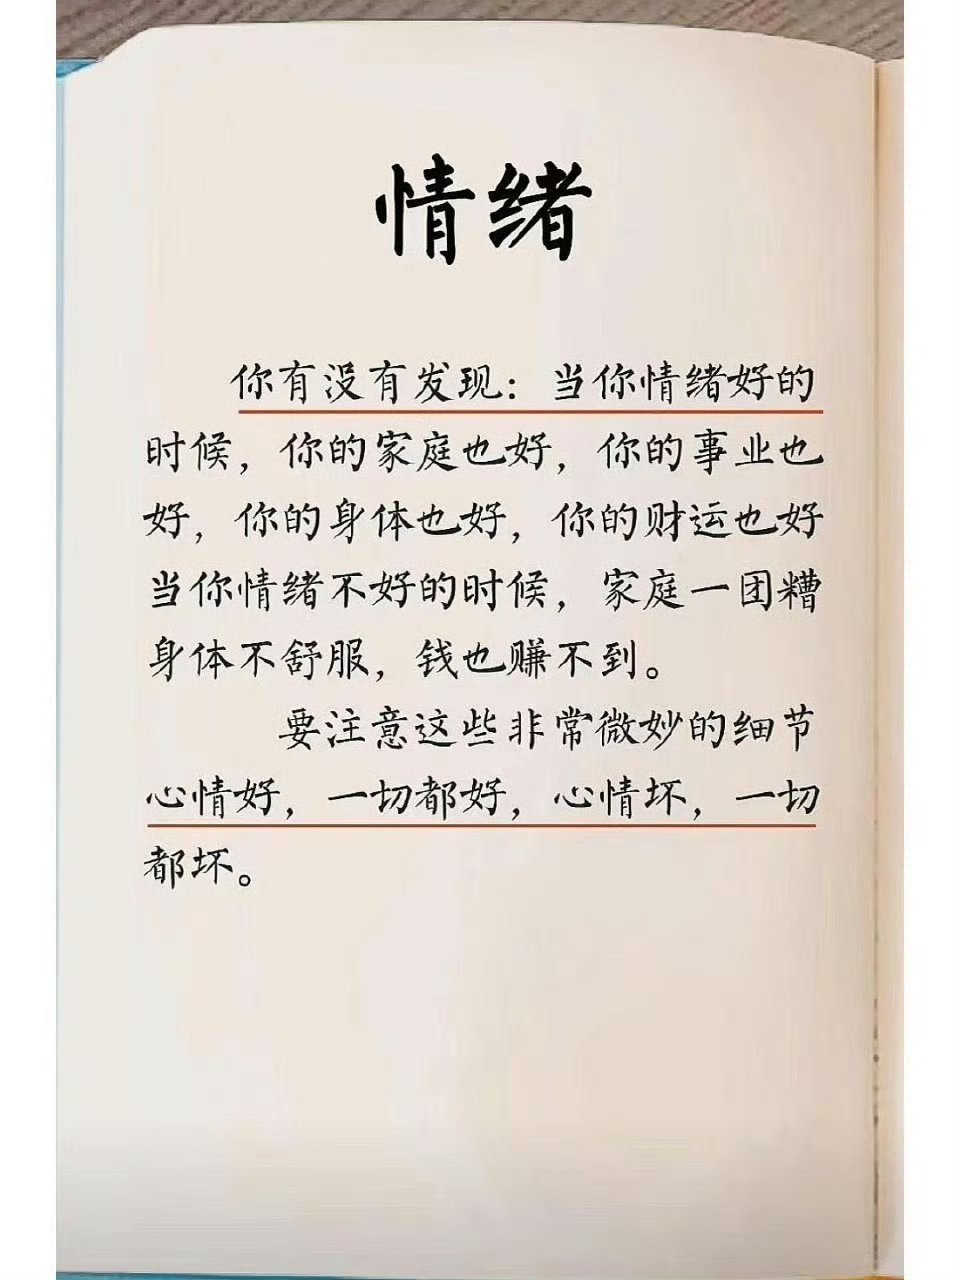 情绪
你有没有发现：当你情绪好的
时候，你的家庭也好，你的事业也
好，你的身体也好，你的财运也好
当你情绪不好的时候，家庭一团糟
身体不舒服，钱也赚不到。
要注意这些非常微妙的细节
心情好，一切都好，心情坏，一切
都坏。